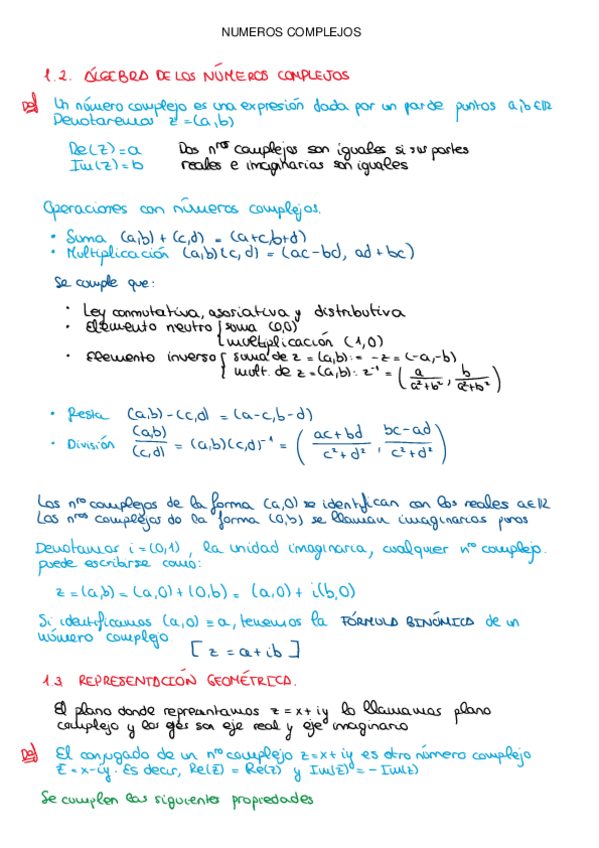 NUMEROS COMPLEJOS
1.2. ÁLGEBRA DE LOS NÚMEROS COMPLEJOS
Def Un número complejo es una expresión dada por un par de puntos a,b∈ℝ
Denotaremos z=(a,b)
Re(z)=a Dos nros complejos son iguales si sus partes
Im(z)=b reales e imaginarias son iguales
Operaciones con números complejos.
· Suma (a,b)+(c,d) = (a+c,b+d)
· Multiplicación (a,b)(c,d) = (ac-bd, ad+bc)
Se cumple que:
· Ley conmutativa, asociativa y distributiva
· Elemento neutro { suma (0,0)
multiplicación (1,0)
· Elemento inverso { suma de z=(a,b):= -z=(-a,-b)
mult. de z=(a,b): z⁻¹ = (a/(a²+b²), b/(a²+b²))
· Resta (a,b)-(c,d) = (a-c,b-d)
· División (a,b)/(c,d) = (a,b)(c,d)⁻¹ = ((ac+bd)/(c²+d²), (bc-ad)/(c²+d²))
Los nros complejos de la forma (a,0) se identifican con los reales a∈ℝ
Los nros complejos de la forma (0,b) se llaman imaginarios puros
Denotamos i=(0,1), la unidad imaginaria, cualquier nº complejo.
puede escribirse como:
z=(a,b)=(a,0)+(0,b)= (a,0)+i(b,0)
Si identificamos (a,0)≡a, tenemos la FÓRMULA BINÓMICA de un
número complejo
[z=a+ib]
1.3 REPRESENTACIÓN GEOMÉTRICA.
El plano donde representamos z=x+iy lo llamamos plano
complejo y los ejes son eje real y eje imaginario
Def El conjugado de un nº complejo z=x+iy es otro número complejo
z̄=x-iy. Es decir, Re(z̄)=Re(z) y Im(z̄)=-Im(z)
Se cumplen las siguientes propiedades